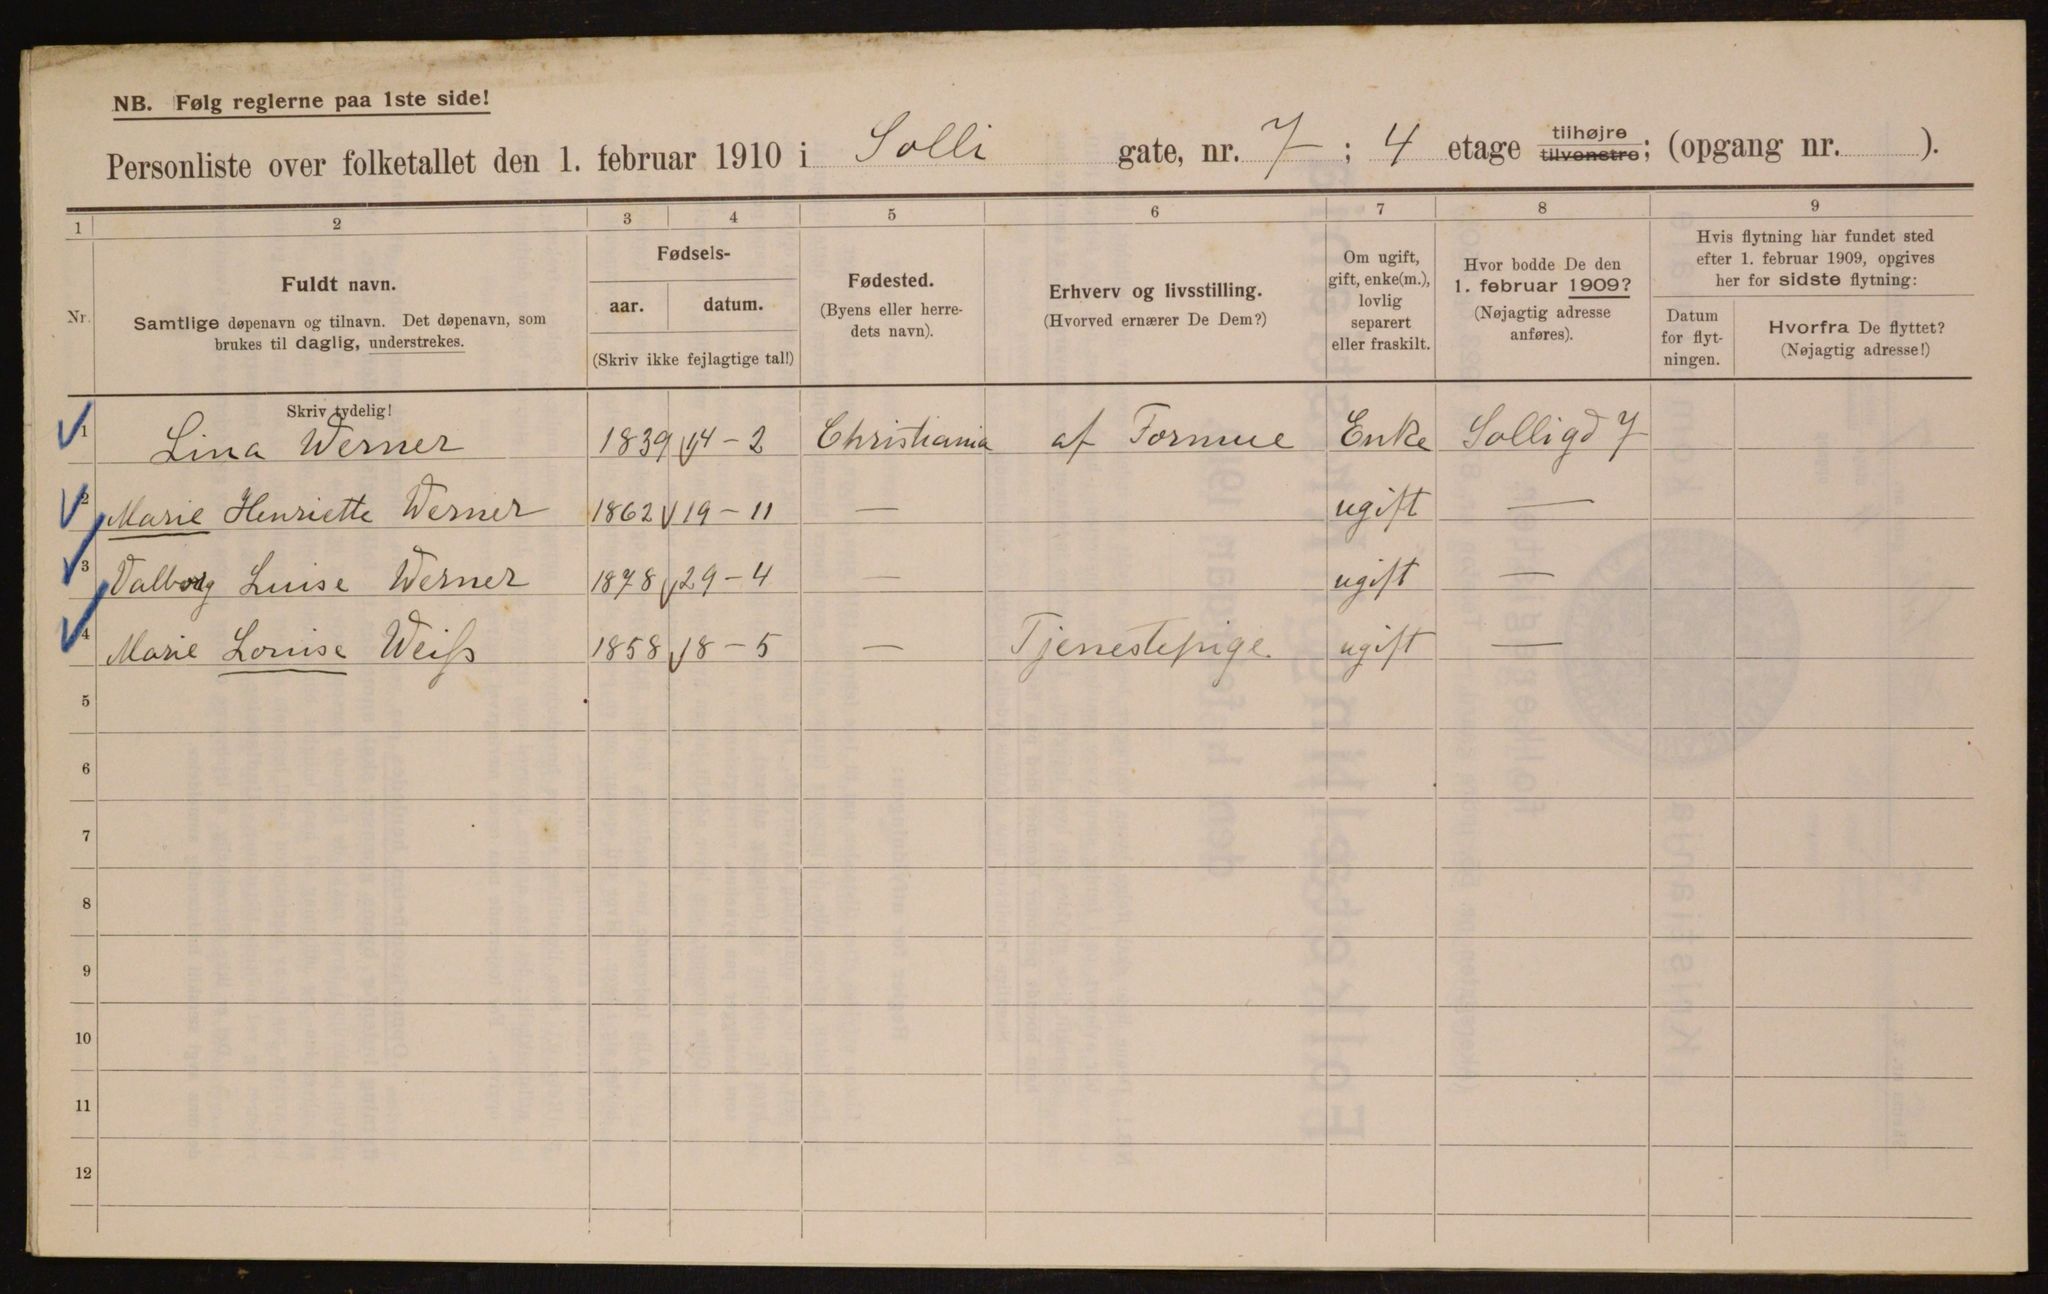 NB. Følg reglerne paa 1ste side!
Personliste over folketallet den 1. februar 1910 i Solli gate, nr. 7; 4 etage tilhøjre tilvenstre; (opgang nr. ).
1 2 3 4 5 6 7 8 9
Nr.
Fuldt navn.
Samtlige døpenavn og tilnavn. Det døpenavn, som
brukes til daglig, understrekes.
Fødsels-
aar. datum.
(Skriv ikke fejlagtige tal!)
Fødested.
(Byens eller herre-
dets navn).
Erhverv og livsstilling.
(Hvorved ernærer De Dem?)
Om ugift,
gift, enke(m.),
lovlig
separert
eller fraskilt.
Hvor bodde De den
1. februar 1909?
(Nøjagtig adresse
anføres).
Hvis flytning har fundet sted
efter 1. februar 1909, opgives
her for sidste flytning:
Datum
for flyt-
ningen.
Hvorfra De flyttet?
(Nøjagtig adresse!)
Skriv tydelig!
1 Lina Werner 1839 14-2 Christiania af Formue Enke Solligd 7
2 Marie Henriette Werner 1862 19-11 — ugift —
3 Valborg Luise Werner 1878 29-4 — ugift —
4 Marie Louise Weifs 1858 18-5 — Tjenestepige. ugift —
5
6
7
8
9
10
11
12